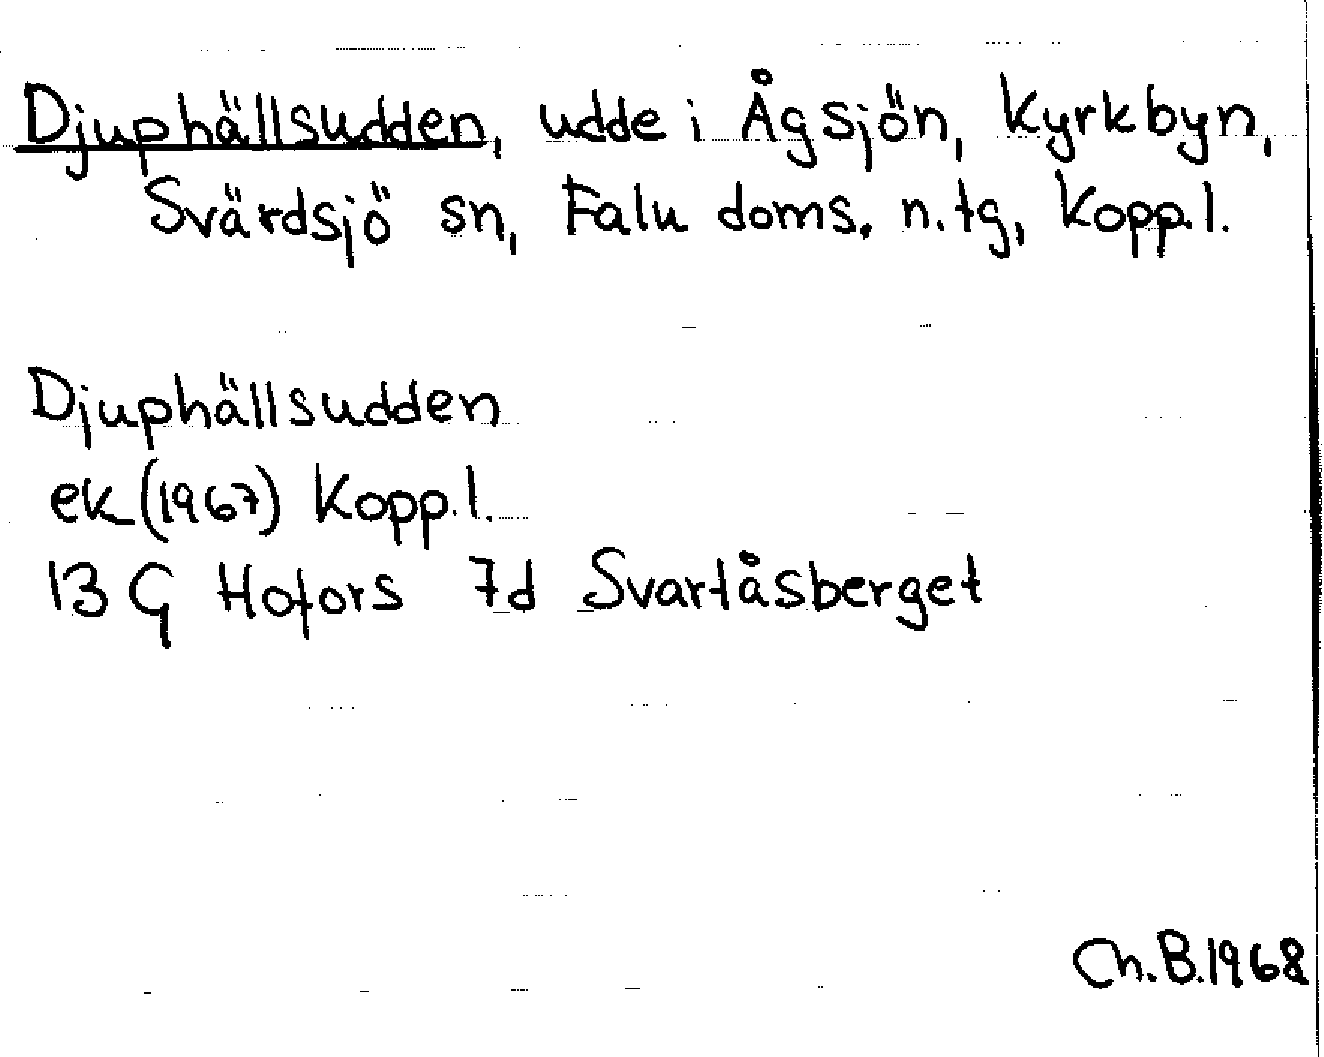 Djuphällsudden, udde i Ågsjön, Kyrkbyn,
Svärdsjö sn, Falu doms. n. tg, Kopp.l.
Djuphällsudden
ek (1967) Kopp.l.
13 G Hofors 7d Svartåsberget
Ch.B.1968